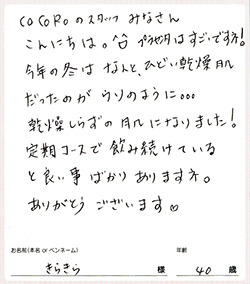 COCOROのスタッフ みなさん
こんにちは。^^ プラセンタはすごいですネ!
今年の冬は なんと、ひどい乾燥肌
だったのが ウソのように…
乾燥しらずの肌になりました!
定期コースで飲み続けている
と良い事ばかりありますネ。
ありがとう ございます♡
お名前(本名 or ペンネーム) 年齢
きらきら 様 40 歳